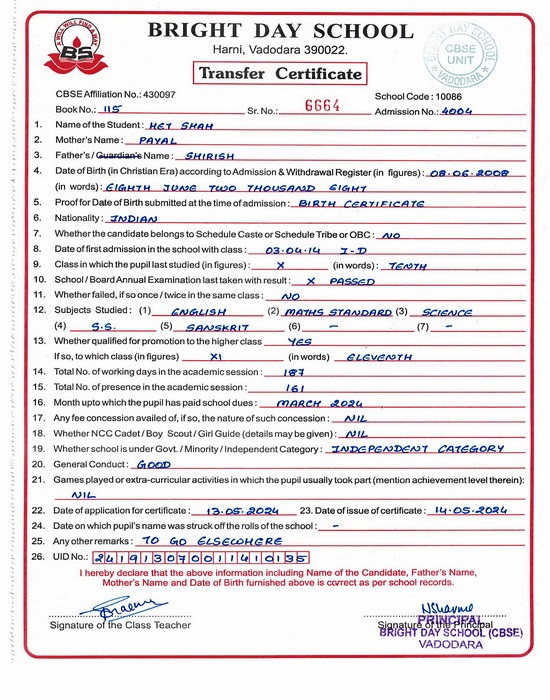 A WILL WILL FIND A WAY
BS
BRIGHT DAY SCHOOL
Harni, Vadodara 390022.
Transfer Certificate
BRIGHT DAY SCHOOL
CBSE
UNIT
VADODARA
CBSE Affiliation No.: 430097 School Code : 10086
Book No.: 115 Sr. No.: 6664 Admission No.: 4004
1. Name of the Student : HET SHAH
2. Mother's Name : PAYAL
3. Father's / Guardian's Name : SHIRISH
4. Date of Birth (in Christian Era) according to Admission & Withdrawal Register (in figures) : 08.06.2008
(in words) : EIGHTH JUNE TWO THOUSAND EIGHT
5. Proof for Date of Birth submitted at the time of admission : BIRTH CERTIFICATE
6. Nationality : INDIAN
7. Whether the candidate belongs to Schedule Caste or Schedule Tribe or OBC : NO
8. Date of first admission in the school with class : 03.04.14 I-D
9. Class in which the pupil last studied (in figures) : X (in words) : TENTH
10. School / Board Annual Examination last taken with result : X PASSED
11. Whether failed, if so once / twice in the same class : NO
12. Subjects Studied : (1) ENGLISH (2) MATHS STANDARD (3) SCIENCE
(4) S.S. (5) SANSKRIT (6) – (7) –
13. Whether qualified for promotion to the higher class YES
If so, to which class (in figures) XI (in words) ELEVENTH
14. Total No. of working days in the academic session : 187
15. Total No. of presence in the academic session : 161
16. Month upto which the pupil has paid school dues : MARCH 2024
17. Any fee concession availed of, if so, the nature of such concession : NIL
18. Whether NCC Cadet / Boy Scout / Girl Guide (details may be given) : NIL
19. Whether school is under Govt. / Minority / Independent Category : INDEPENDENT CATEGORY
20. General Conduct : GOOD
21. Games played or extra-curricular activities in which the pupil usually took part (mention achievement level therein):
NIL
22. Date of application of certificate : 13.05.2024 23. Date of issue of certificate : 14.05.2024
24. Date on which pupil's name was struck off the rolls of the school : –
25. Any other remarks : TO GO ELSEWHERE
26. UID No.: 241913070011410135
I hereby declare that the above information including Name of the Candidate, Father's Name,
Mother's Name and Date of Birth furnished above is correct as per school records.
Signature of the Class Teacher Signature of the Principal
PRINCIPAL
BRIGHT DAY SCHOOL (CBSE)
VADODARA